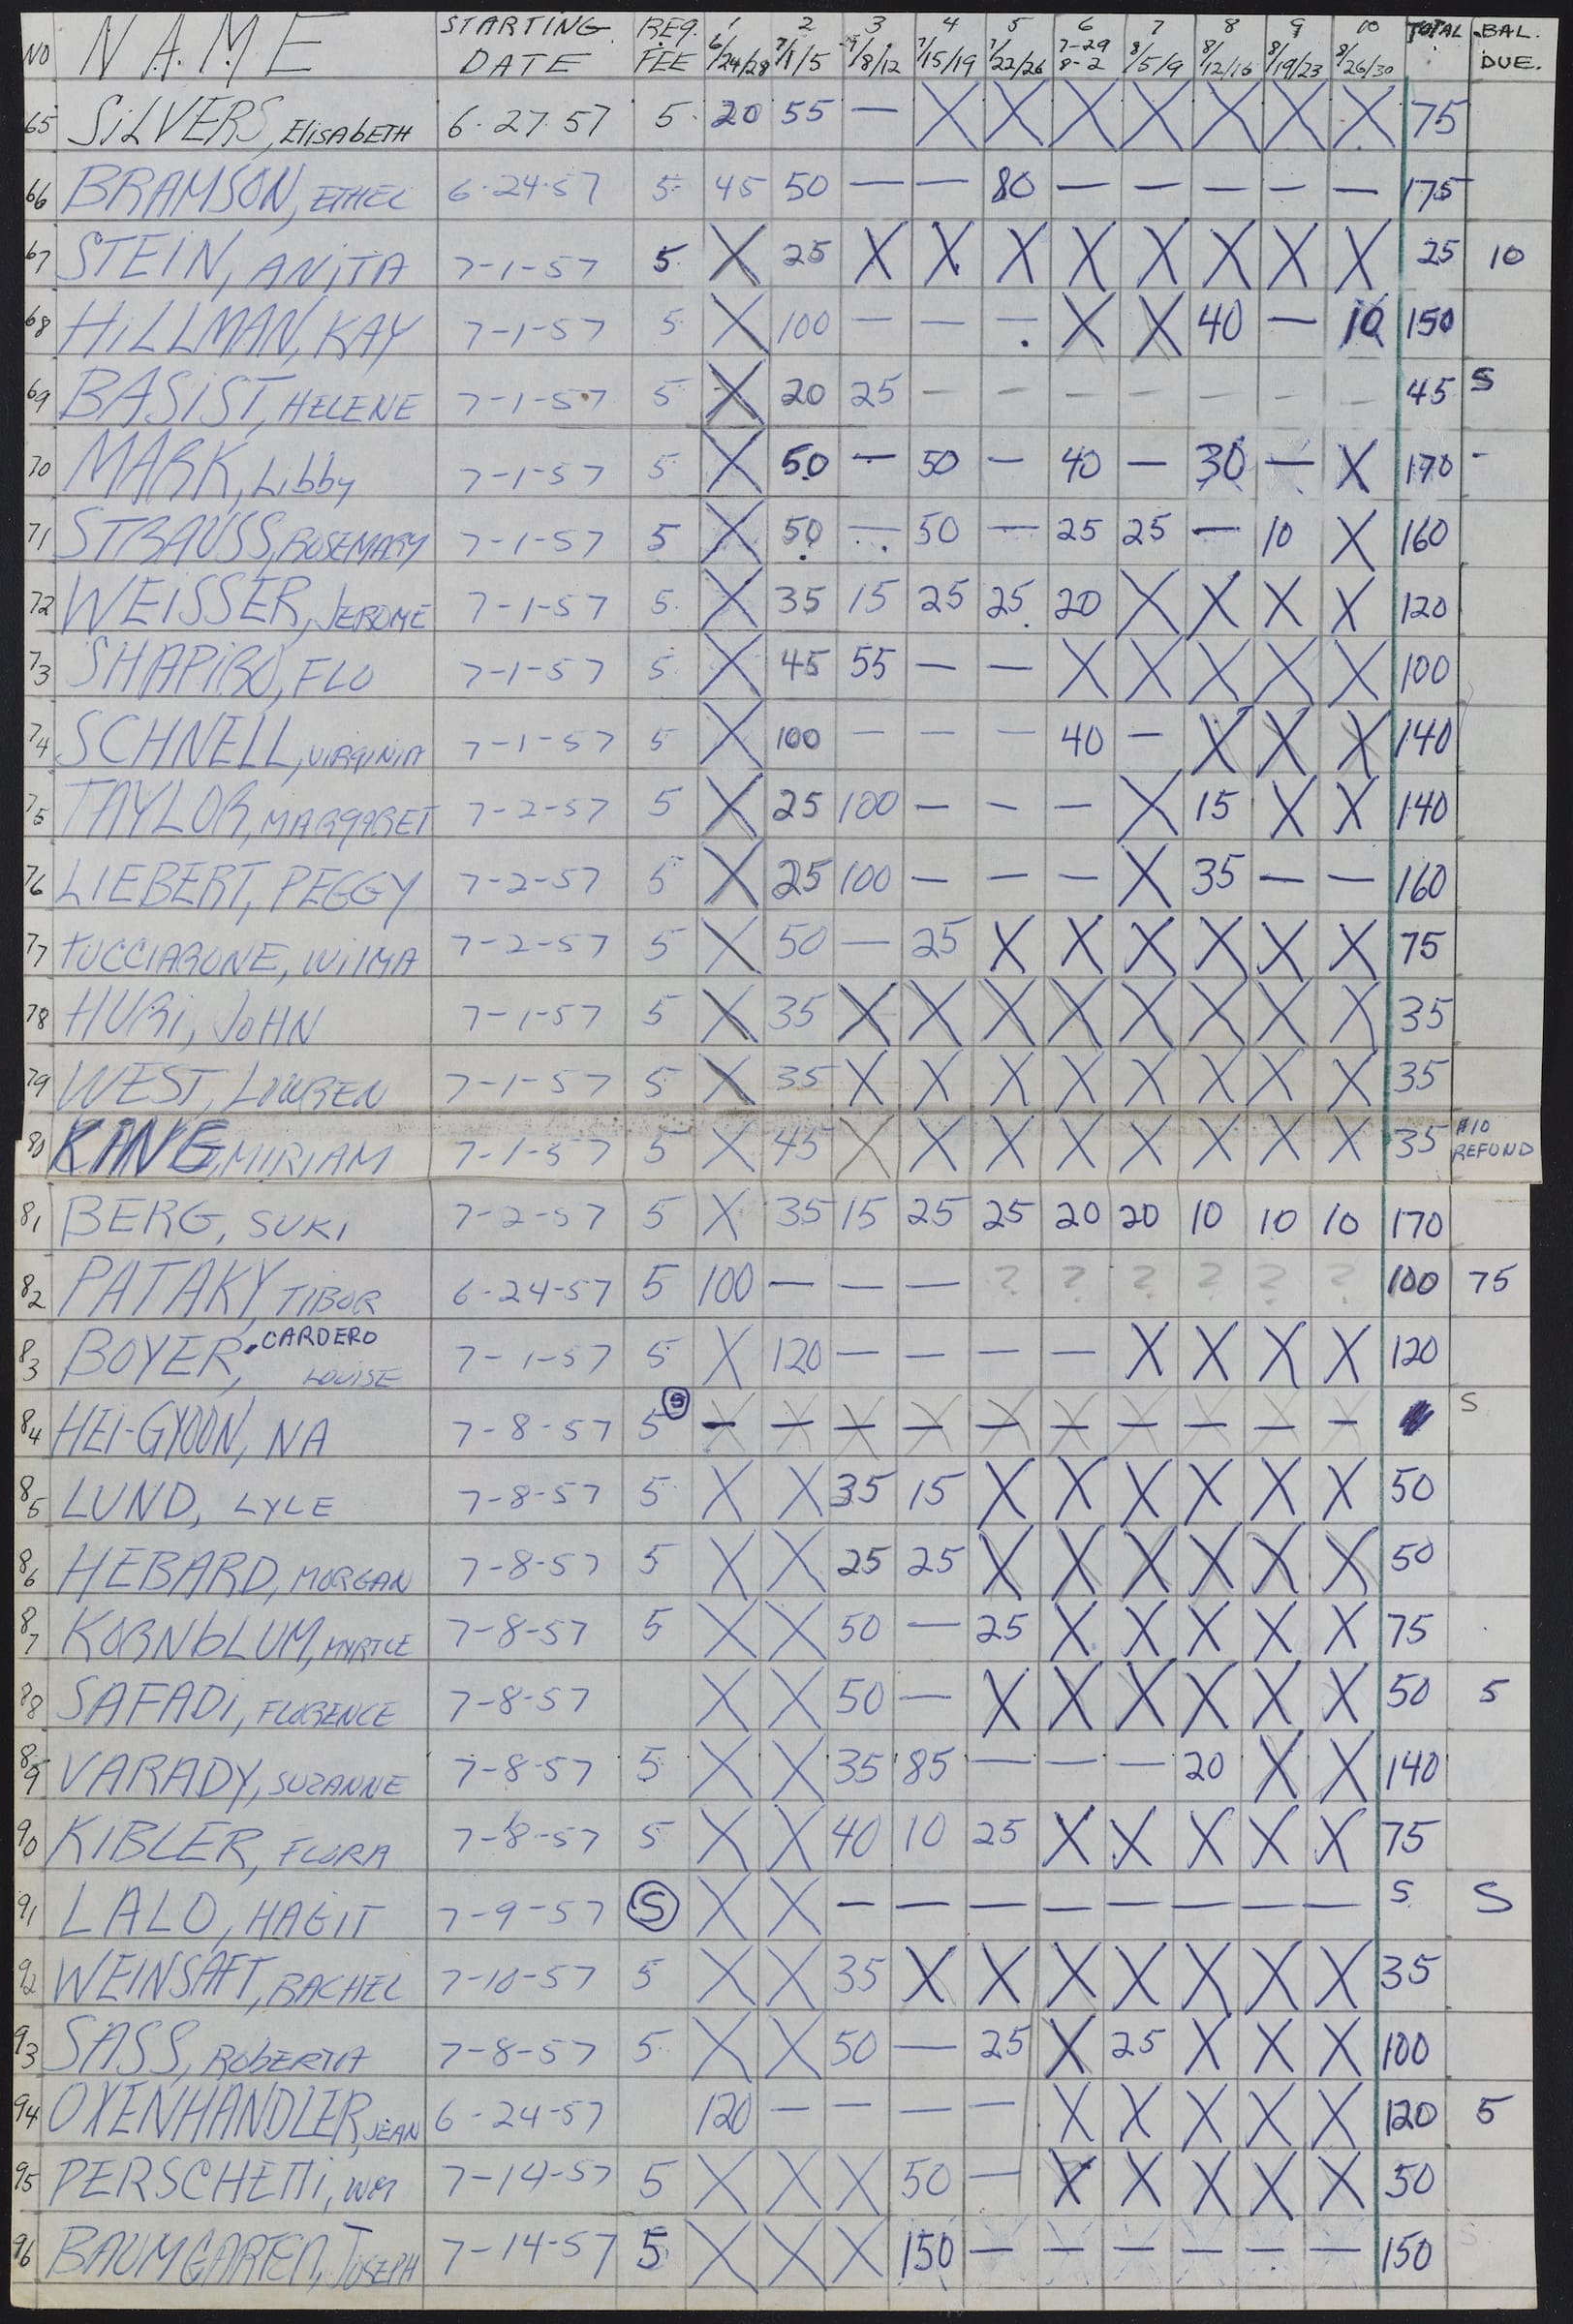 NO NAME STARTING DATE REG. FEE 1 6/24/28 2 7/1/5 3 7/8/12 4 7/15/19 5 7/22/26 6 7-29 8-2 7 8/5/9 8 8/12/16 9 8/19/23 10 8/26/30 TOTAL BAL. DUE.
65 SILVERS, ELISABETH 6.27.57 5 20 55 — X X X X X X X 75
66 BRAMSON, ETHEL 6.24.57 5 45 50 — — 80 — — — — — 175
67 STEIN, ANITA 7-1-57 5 X 25 X X X X X X X X 25 10
68 HILLMAN, KAY 7-1-57 5 X 100 — — — X X 40 — 10 150
69 BASIST, HELENE 7-1-57 5 X 20 25 — — — — — — — 45 S
70 MARK, Libby 7-1-57 5 X 50 — 50 — 40 — 30 — X 170 -
71 STRAUSS, ROSEMARY 7-1-57 5 X 50 — 50 — 25 25 — 10 X 160
72 WEISSER, JEROME 7-1-57 5 X 35 15 25 25 20 X X X X 120
73 SHAPIRO, FLO 7-1-57 5 X 45 55 — — X X X X X 100
74 SCHNELL, VIRGINIA 7-1-57 5 X 100 — — — 40 — X X X 140
75 TAYLOR, MARGARET 7-2-57 5 X 25 100 — — — X 15 X X 140
76 LIEBERT, PEGGY 7-2-57 5 X 25 100 — — — X 35 — — 160
77 TUCCIARONE, WILMA 7-2-57 5 X 50 — 25 X X X X X X 75
78 HURI, JOHN 7-1-57 5 X 35 X X X X X X X X 35
79 WEST, LOUREN 7-1-57 5 X 35 X X X X X X X X 35
80 KING, MIRIAM 7-1-57 5 X 45 X X X X X X X X 35 $10 REFUND
81 BERG, SUKI 7-2-57 5 X 35 15 25 25 20 20 10 10 10 170
82 PATAKY, TIBOR 6-24-57 5 100 — — — ? ? ? ? ? ? 100 75
83 BOYER, CARDERO LOUISE 7-1-57 5 X 120 — — — — X X X X 120
84 HEI-GYOON, NA 7-8-57 5 S — — — — — — — — — — S
85 LUND, LYLE 7-8-57 5 X X 35 15 X X X X X X 50
86 HEBARD, MORGAN 7-8-57 5 X X 25 25 X X X X X X 50
87 KORNbLUM, MYRTLE 7-8-57 5 X X 50 — 25 X X X X X 75
88 SAFADI, FLORENCE 7-8-57 X X 50 — X X X X X X 50 5
89 VARADY, SUZANNE 7-8-57 5 X X 35 85 — — — 20 X X 140
90 KIBLER, FLORA 7-8-57 5 X X 40 10 25 X X X X X 75
91 LALO, HAGIT 7-9-57 S X X — — — — — — — — S S
92 WEINSAFT, RACHEL 7-10-57 5 X X 35 X X X X X X X 35
93 SASS, RObERTA 7-8-57 5 X X 50 — 25 X 25 X X X 100
94 OXENHANDLER, JEAN 6-24-57 120 — — — — X X X X X 120 5
95 PERSCHETTI, WM 7-14-57 5 X X X 50 — X X X X X 50
96 BAUMGARTEN, JOSEPH 7-14-57 5 X X X 150 — — — — — — 150 S